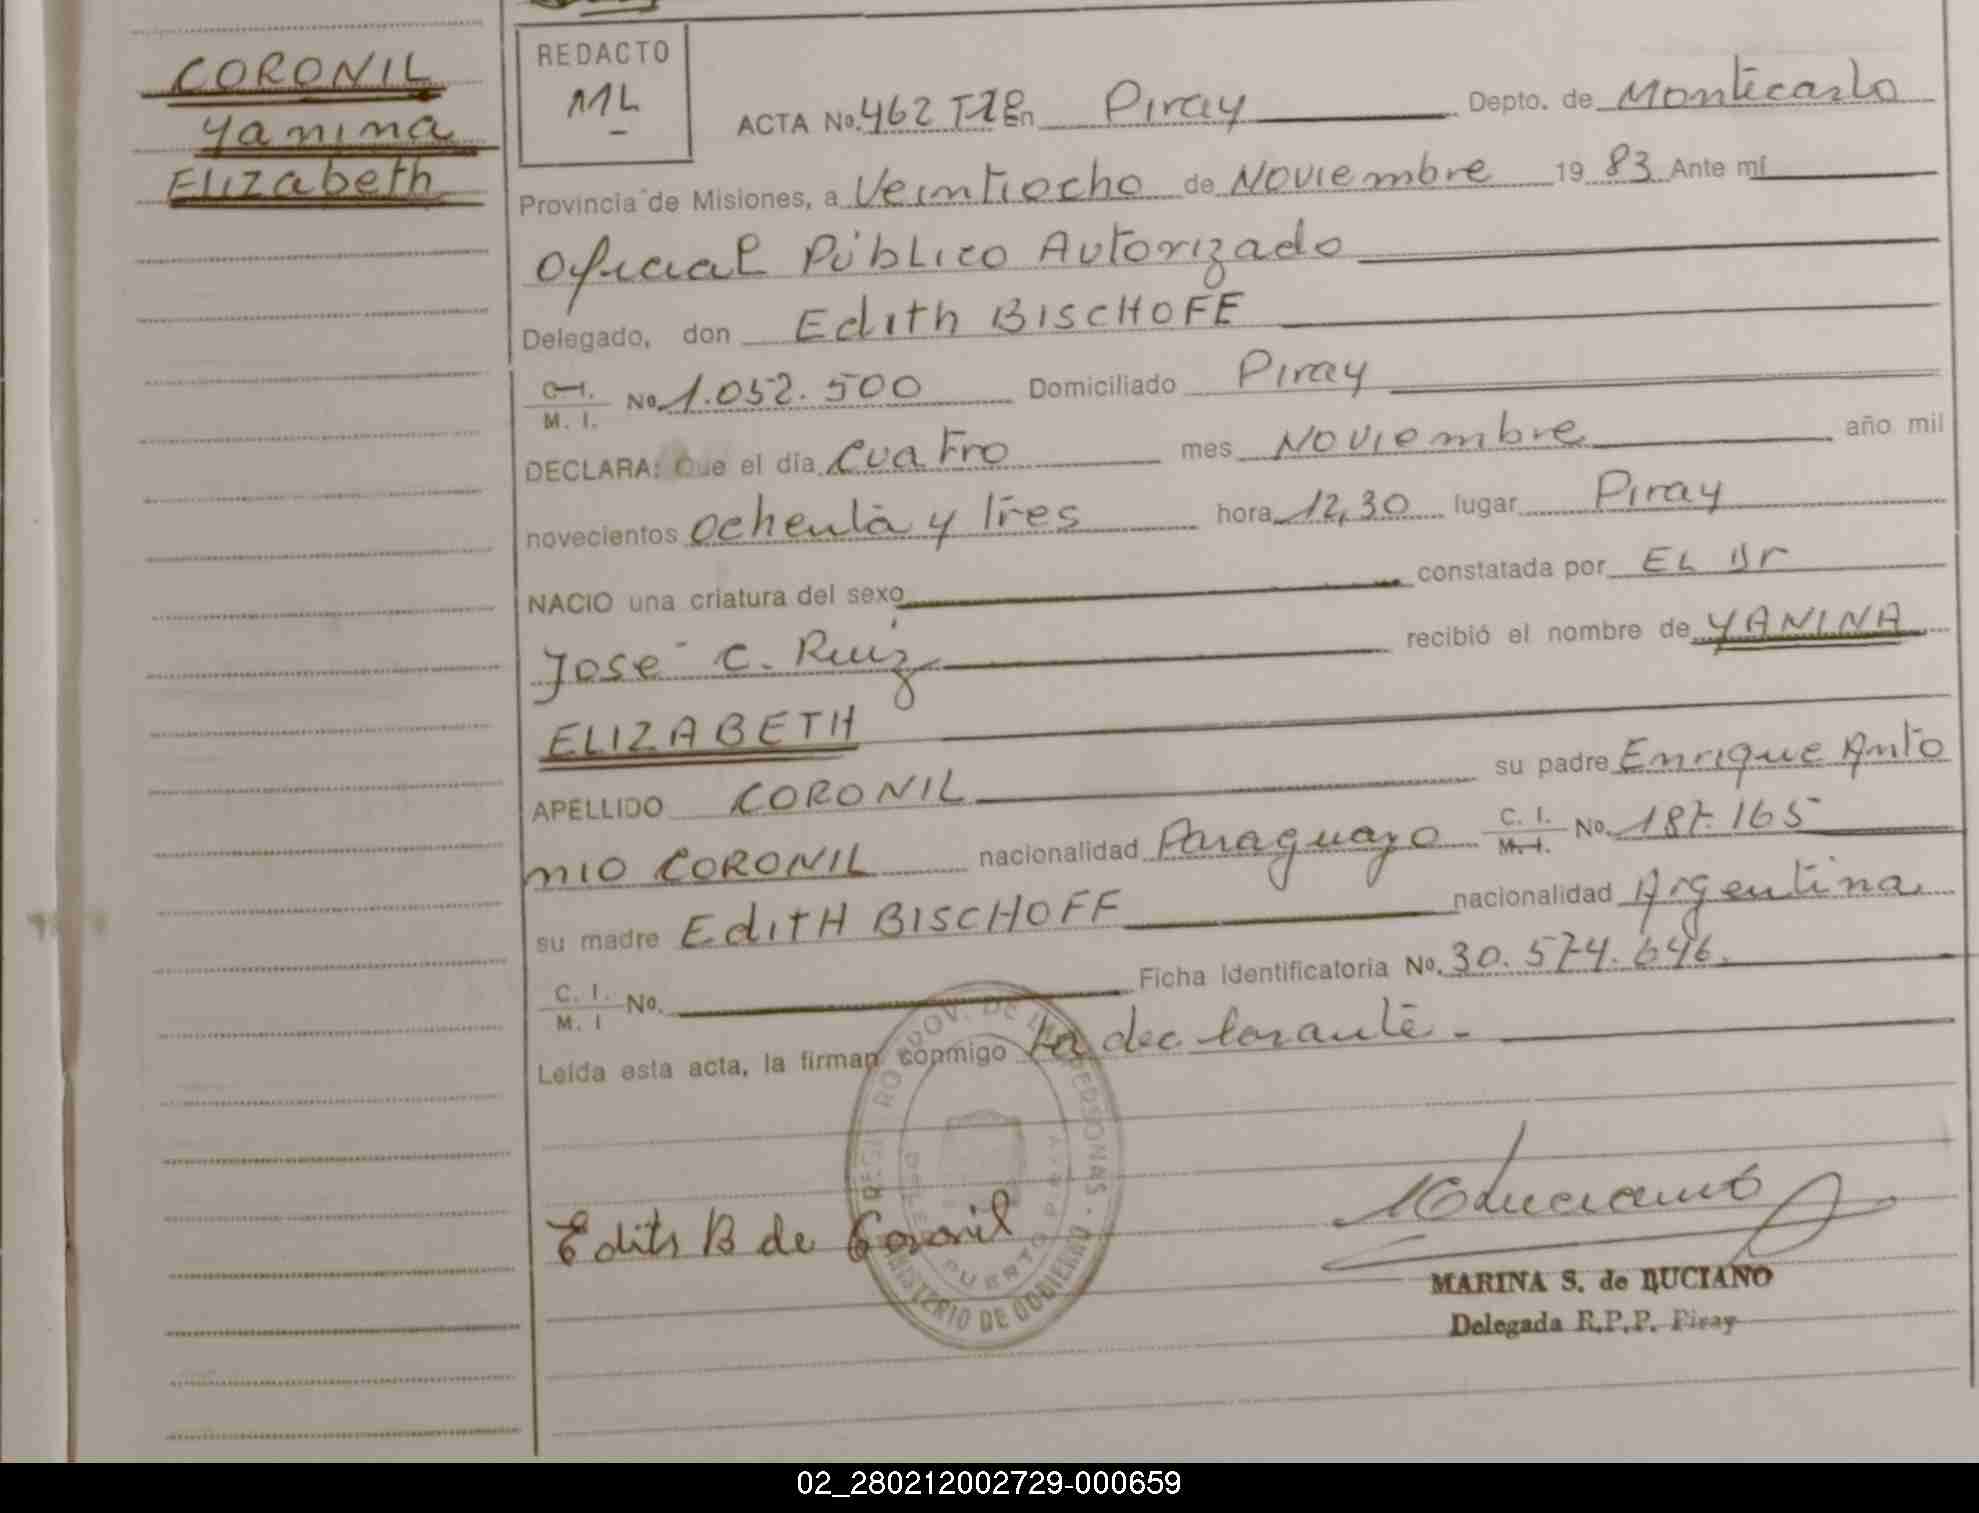 CORONIL
Yanina
Elizabeth
REDACTO
ML
ACTA No. 462 T-2º En Piray Depto. de Montecarlo
Provincia de Misiones, a Veintiocho de Noviembre 19 83 Ante mí
Oficial Público Autorizado
Delegado, don Edith BISCHOFF
C. I.
M. I. No. 1.052.500 Domiciliado Piray
DECLARA: Que el día cuatro mes Noviembre año mil
novecientos ochenta y tres hora 12,30 lugar Piray
NACIO una criatura del sexo constatada por EL Dr
José C. Ruiz recibió el nombre de YANINA
ELIZABETH
APELLIDO CORONIL su padre Enrique Anto
nio CORONIL nacionalidad Paraguayo C. I. M. I. No. 187.165
su madre Edith BISCHOFF nacionalidad Argentina
C. I.
M. I No. Ficha Identificatoria No. 30.574.646.
Leída esta acta, la firman conmigo La declarante.-
PROV. DE LAS PERSONAS
MINISTERIO DE GOBIERNO
PUERTO PIRAY
Edith B de Coronil
MARINA S. de LUCIANO
Delegada R.P.P. Piray
02_280212002729-000659